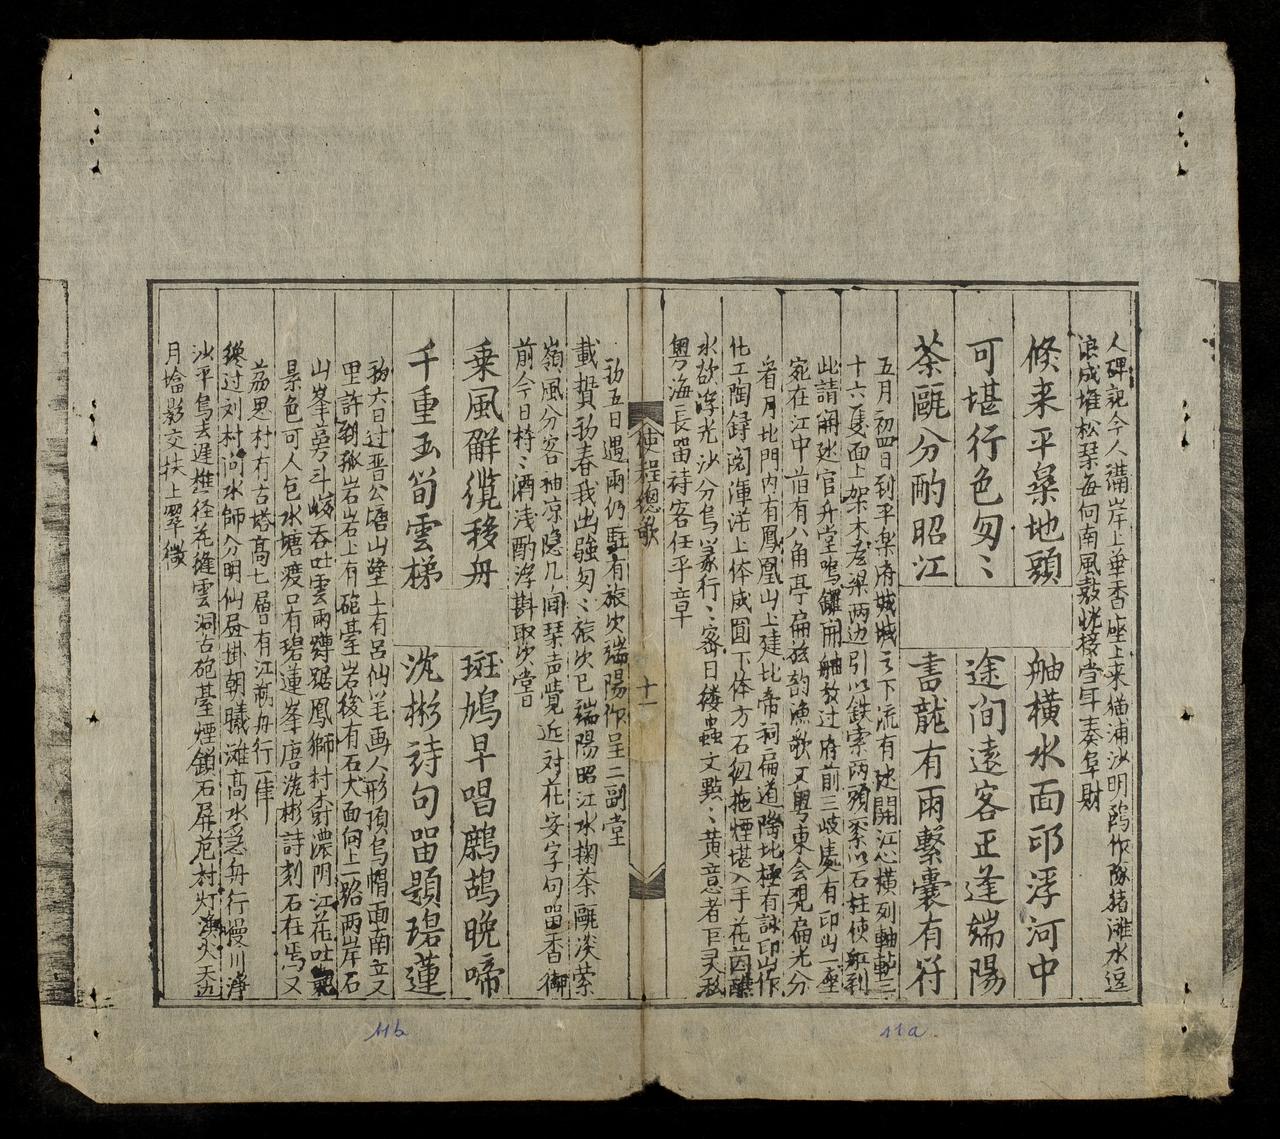 人碑祀今人滿岸上華香座上来猫浦沙明鷗作隊猪灘水逗
浪成堆松琹每向南風敼恍接當年奏阜財
倏来平桑地頭 舳橫水面印浮河中
可堪行色匆〻 途间遠客正逢端陽
茶甌分酌昭江 書龍有雨繫囊有符
五月初四日到平楽府城城之下流有建開江心横列舳艫三
十六隻面上架木爲梁两边引以鉄索两頭系以石柱使舡到
此請開遞官升堂鳴鑼開舳放过府前三歧處有印山一座
宛在江中前有八角亭扁弦韵漁歌又粤東会覌扁光分
眷月北門内有鳳凰山上建北帝祠扁道隆北極有詠印山作
化工陶録闊渾茫上体咸圓下体方石纽拖煙堪入手花茵蘸
水欲浮光沙分鳥篆行〻密日縷蟲文點〻黄意者巨灵私
粤海長留待客任乎章
使程總歌 十一
初五日遇雨仍駐有旅次端陽作呈二副堂
載贄初春我出強匆〻旅次已端陽昭江水掬茶甌淡萦
嶺風分客袖凉隐几闻琹声覺近对花安字句留香御
前今日持〻酒浅酌浮斟取次嘗
乗風觧纜移舟 斑鳩早唱鷓鴣晚啼
千重玉筍雲梯 沈彬詩句留題碧蓮
初六日过晋公塘山壁上有呂仙羊画人形頂烏帽面南立又
里許朝狐岩岩上有砲䑓岩後有石犬面向上路两岸石
山峯旁斗峻吞吐雲雨蹲踞鳳獅村裔濃阴江花吐氣
景色可人包水塘渡口有碧蓮峯唐沈彬詩刻石在焉又
荔思村有古塔高七層有江荊舟行一律
纔过刘村问水師分明仙㞐掛朝曦滩高水急舟行慢川净
沙平鳥去遅樵径花縫雲洞古砲䑓煙鎖石屏危村灯漁火天边
月塔影交扶上翠微
11b 11a